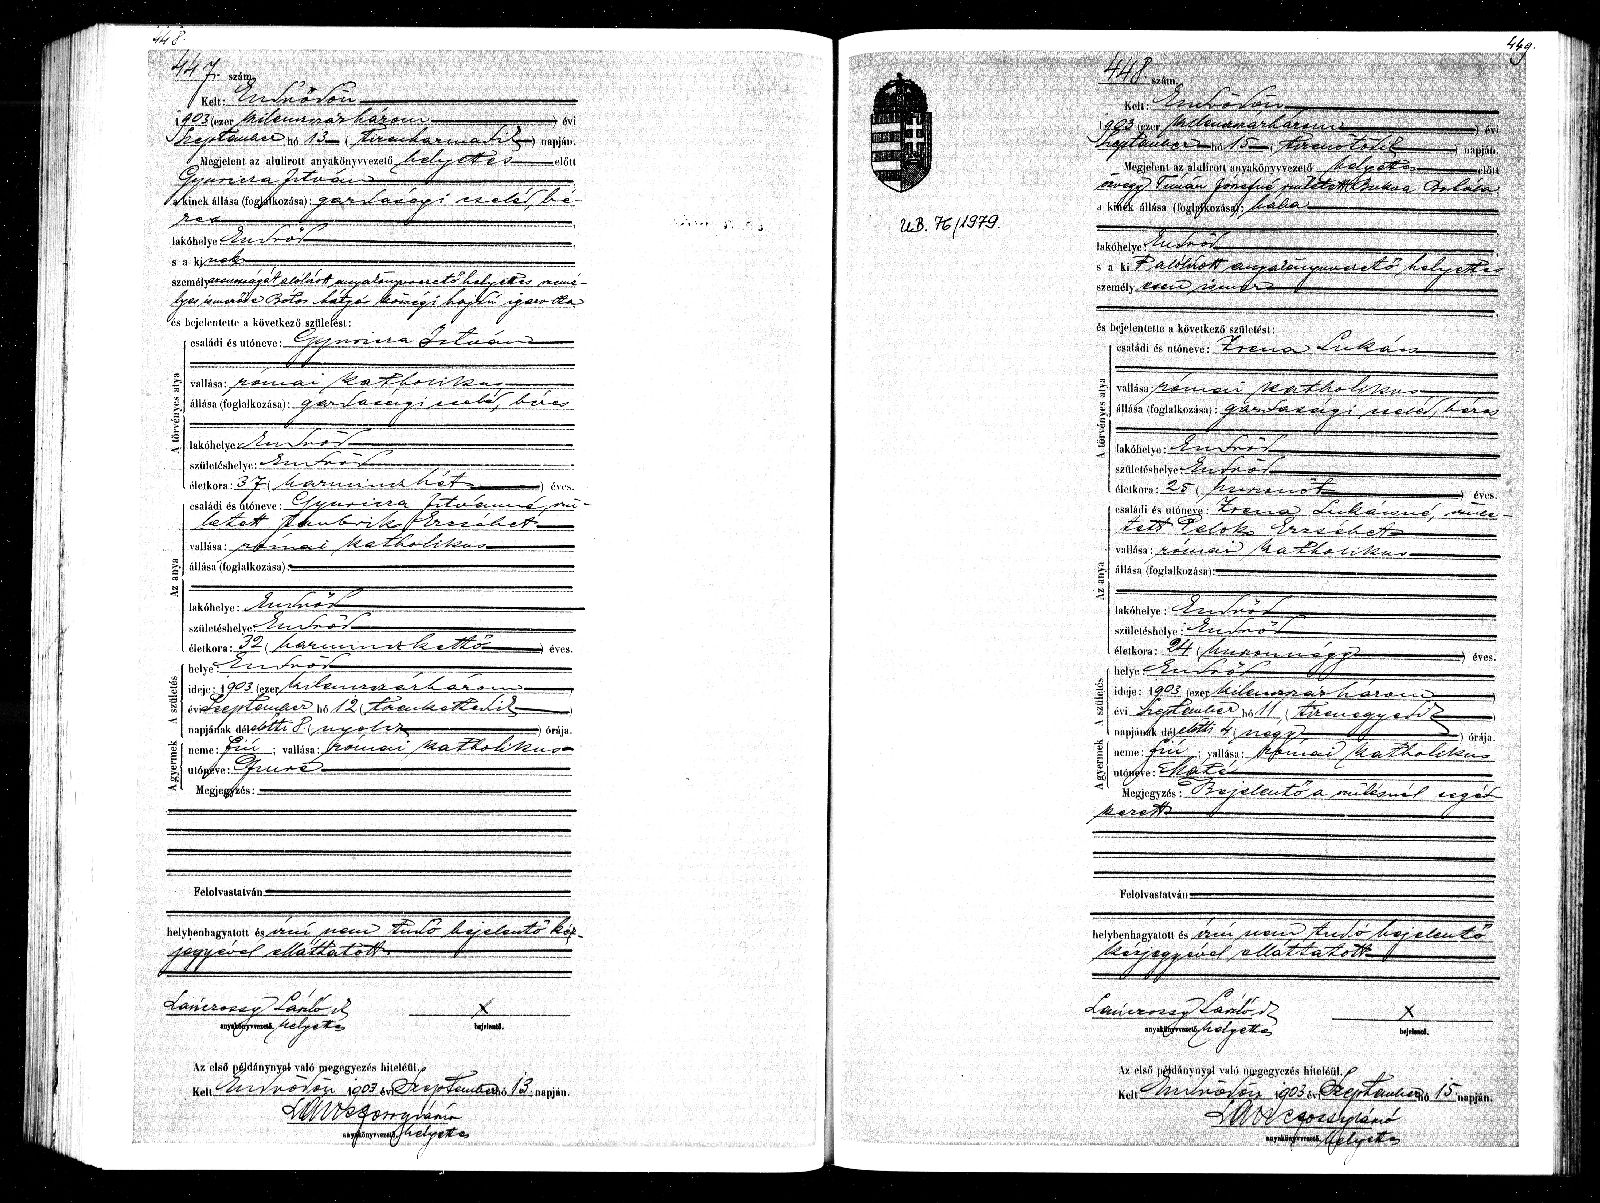 448.
447. szám.
Kelt: Endrődön
1903 (ezer kilenczszázhárom) évi
Szeptember hó 13 (tizenharmadik) napján.
Megjelent az alulirott anyakönyvvezető helyettes előtt
Gyuricza István
a kinek állása (foglalkozása): gazdasági cseléd, bé-
res
lakóhelye: Endrőd
s a kinek
személyazonosságát alólírott anyakönyvvezető helyettes szemé-
lyes ismerőse bátya községi hajdú igazolta
és bejelentette a következő születést:
A törvényes atya
családi és utóneve: Gyuricza István
vallása: római katholikus
állása (foglalkozása): gazdasági cseléd, béres
lakóhelye: Endrőd
születéshelye: Endrőd
életkora: 37 (harminczhét) éves.
Az anya
családi és utóneve: Gyuricza Istvánné, szü-
letett Erzsébet
vallása: római katholikus
állása (foglalkozása):
lakóhelye: Endrőd
születéshelye: Endrőd
életkora: 32 (harminczkettő) éves.
A születés
helye: Endrőd
ideje: 1903 (ezer kilenczszázhárom)
évi Szeptember hó 12 (tizenkettedik)
napjának délelőtti 8 (nyolcz) órája.
A gyermek
neme: fiú; vallása: római katholikus
utóneve: Imre
Megjegyzés:
Felolvastatván
helybenhagyatott és írni nem tudó bejelentő kéz-
jegyével elláttatott.
László
anyakönyvvezető helyettes
x
bejelentő.
Az első példánynyal való megegyezés hiteléül.
Kelt Endrődön 1903 évi Szeptember hó 13. napján.
anyakönyvvezető helyettes
449.
448. szám.
U.B. 76/1979.
Kelt: Endrődön
1903 (ezer kilenczszázhárom) évi
Szeptember hó 15 (tizenötödik) napján.
Megjelent az alulirott anyakönyvvezető helyettes előtt
özvegy Tímár Józsefné született Borbála
a kinek állása (foglalkozása): bába
lakóhelye: Endrőd
s a kit alólírott anyakönyvvezető helyettes
személyesen ismer
és bejelentette a következő születést:
A törvényes atya
családi és utóneve: Izsna Lukács
vallása: római katholikus
állása (foglalkozása): gazdasági cseléd, béres
lakóhelye: Endrőd
születéshelye: Endrőd
életkora: 25 (huszonöt) éves.
Az anya
családi és utóneve: Lukácsné, szüle-
tett Pelok Erzsébet
vallása: római katholikus
állása (foglalkozása):
lakóhelye: Endrőd
születéshelye: Endrőd
életkora: 24 (huszonnégy) éves.
A születés
helye: Endrőd
ideje: 1903 (ezer kilenczszázhárom)
évi Szeptember hó 11 (tizenegyedik)
napjának délelőtti 4 (négy) órája.
A gyermek
neme: fiú; vallása: római katholikus
utóneve: Máté
Megjegyzés: Bejelentő a szülésnél segéd-
kezett
Felolvastatván
helybenhagyatott és írni nem tudó bejelentő
kézjegyével elláttatott
László
anyakönyvvezető helyettes
x
bejelentő.
Az első példánynyal való megegyezés hiteléül.
Kelt Endrődön 1903 évi Szeptember hó 15 napján.
anyakönyvvezető helyettes